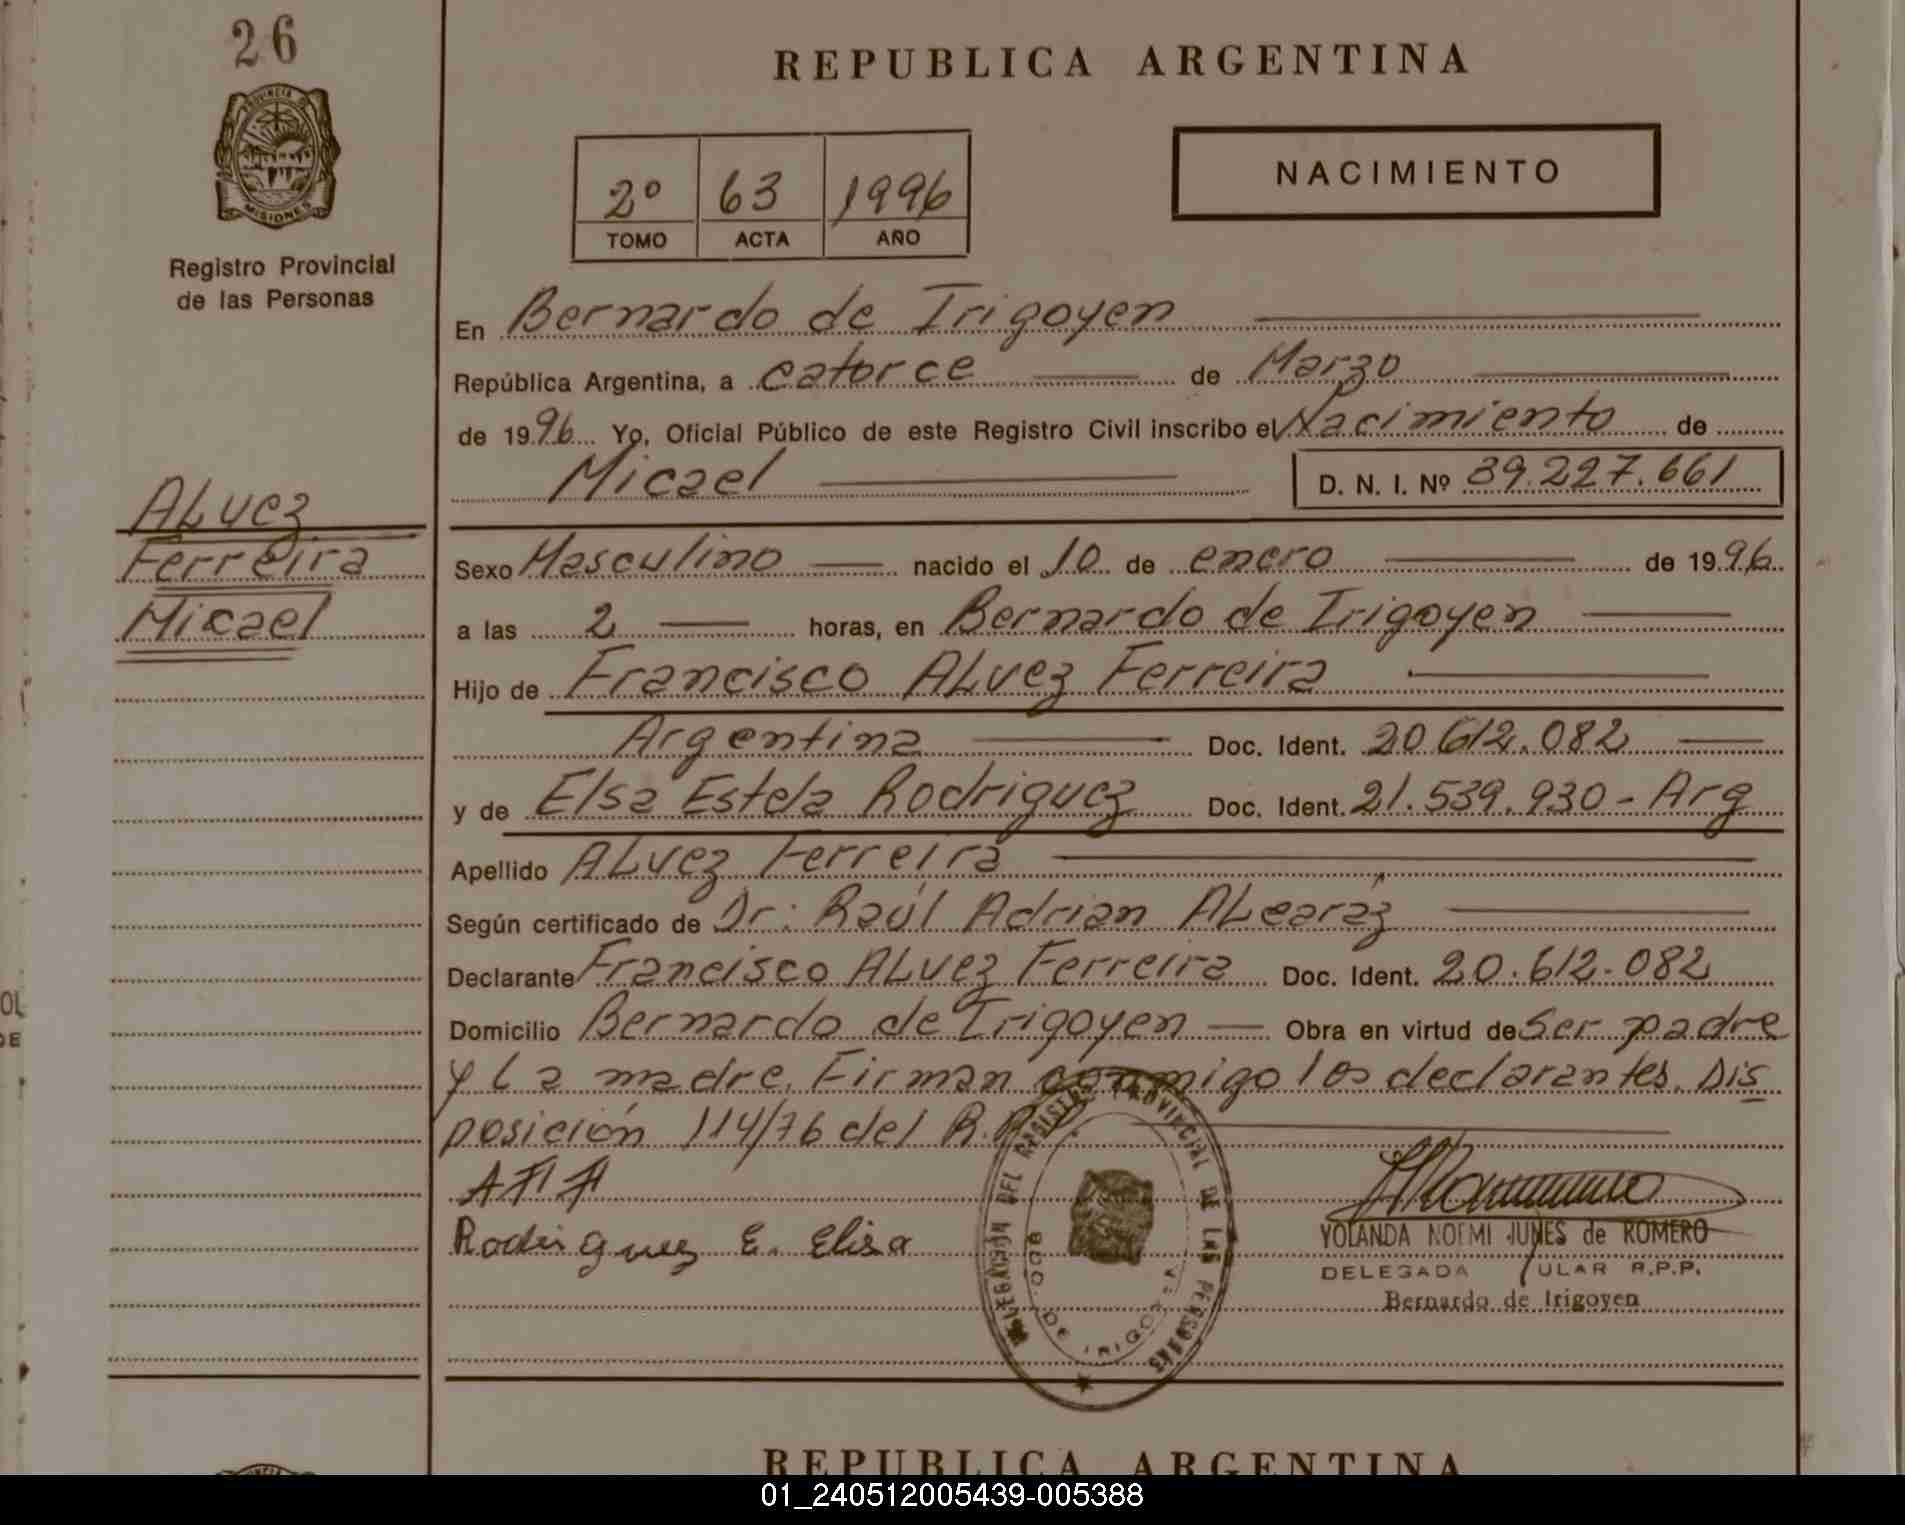 26
PROVINCIA DE
MISIONES
Registro Provincial
de las Personas
ALvez
Ferreira
Micael
REPUBLICA ARGENTINA
2º 63 1996
TOMO ACTA AÑO
NACIMIENTO
En Bernardo de Irigoyen
República Argentina, a catorce de Marzo
de 1996 Yo, Oficial Público de este Registro Civil inscribo el Nacimiento de
Micael D. N. I. Nº 39.227.661
Sexo Masculino nacido el 10 de enero de 1996
a las 2 horas, en Bernardo de Irigoyen
Hijo de Francisco ALvez Ferreira
Argentina Doc. Ident. 20.612.082
y de Elsa Estela Rodriguez Doc. Ident. 21.539.930 - Arg
Apellido ALvez Ferreira
Según certificado de Dr: Raúl Adrian ALcaráz
Declarante Francisco ALvez Ferreira Doc. Ident. 20.612.082
Domicilio Bernardo de Irigoyen Obra en virtud de Ser padre
y La madre. Firman conmigo los declarantes. Dis
posición 114/76 del R.P.P.
A F A
Rodriguez E. Elisa
DELEGACIÓN DEL REGISTRO PROVINCIAL DE LAS PERSONAS
BDO. DE IRIGOYEN
YOLANDA NOEMI JUNES de ROMERO
DELEGADA ULAR R.P.P.
Bernardo de Irigoyen
REPUBLICA ARGENTINA
01_240512005439-005388